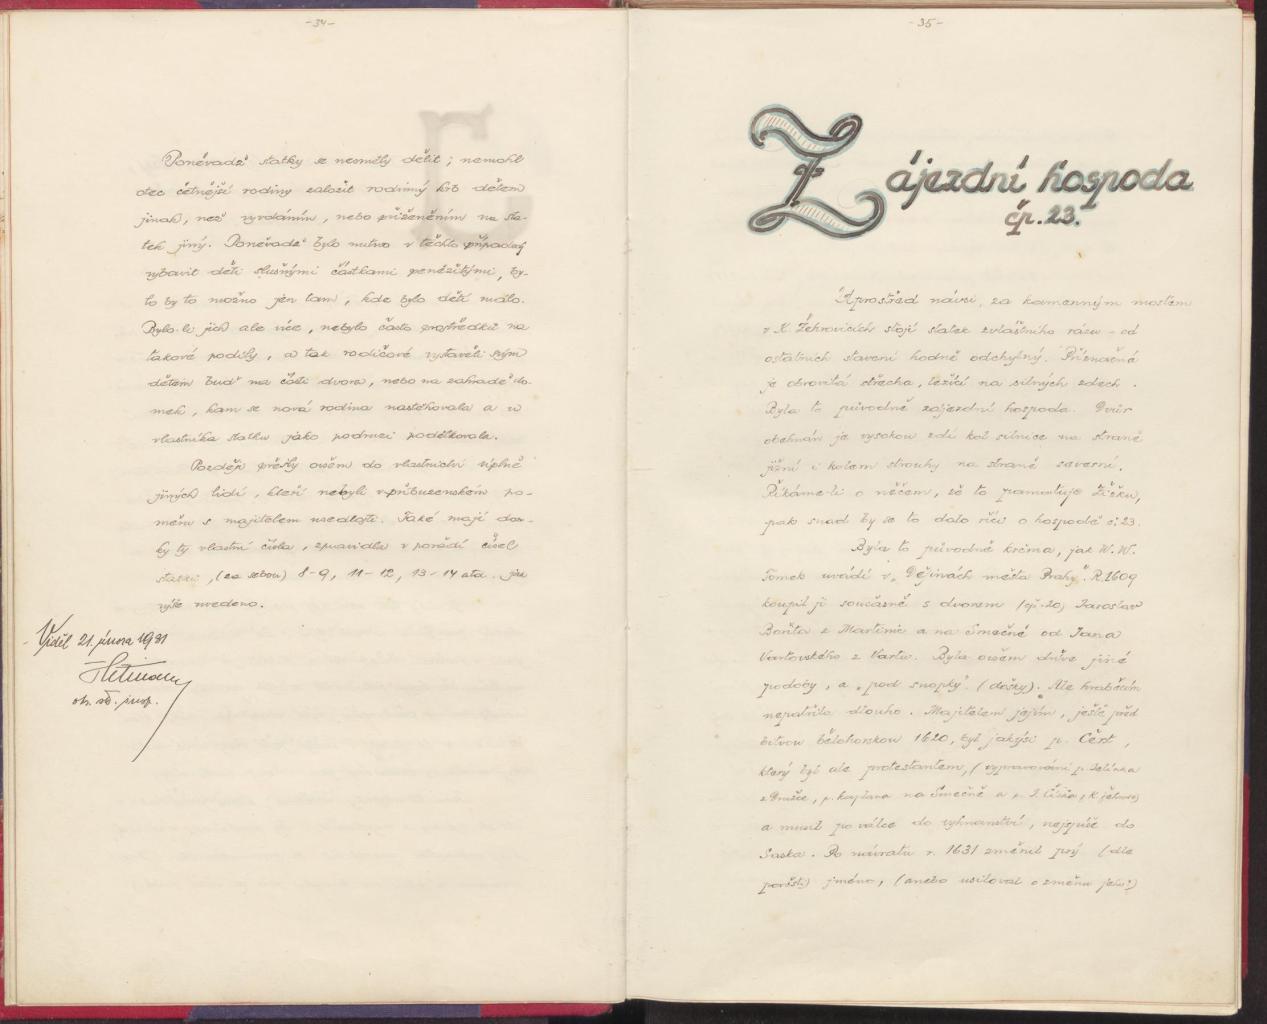 -34-
Poněvadž statky se nesměly dělit; nemohl
otec četnější rodiny založit rodinný krb dětem
jinak, než vyvdáním, nebo přiženěním na sta-
tek jiný. Poněvadž bylo nutno v těchto případech
vybavit děti slušnými částkami peněžitými, by-
lo by to možno jen tam, kde bylo dětí málo.
Bylo-li jich ale více, nebylo často prostředků na
takové podíly, a tak rodičové vystavěli svým
dětem buď na části dvora, nebo na zahradě do-
mek, kam se nová rodina nastěhovala a u
vlastníka statku jako podruzi poddělkovala.
Později přešly ovšem do vlastnictví úplně
jiných lidí, kteří nebyli v příbuzenském po-
měru s majitelem usedlosti. Také mají dom-
ky ty vlastní čísla, zpravidla v pořadí čísel
statků, (za sebou) 8-9, 11-12, 13-14 atd. jak
výše uvedeno.
Viděl 21. února 1931
-35-
Zájezdní hospoda
čp. 23.
Uprostřed návsi, za kamenným mostem
v K. Žehrovicích stojí statek zvláštního rázu - od
ostatních stavení hodně odchylný. Příznačná
je obrovitá střecha, ležící na silných zdech.
Byla to původně zájezdní hospoda. Dvůr
obehnán je vysokou zdí kol silnice na straně
jižní i kolem strouhy na straně severní.
Říkáme-li o něčem, že to pamatuje Žižku,
pak snad by se to dalo říci o hospodě č. 23.
Byla to původně krčma, jak W. W.
Tomek uvádí v „Dějinách města Prahy". R. 1609
koupil ji současně s dvorem (čp. 20) Jaroslav
Bořita z Martinic a na Smečně od Jana
Vartovského z Vartu. Byla ovšem dříve jiné
podoby, a „pod snopky" (došky). Ale hraběcím
nepatřila dlouho. Majitelem jejím, ještě před
bitvou bělohorskou 1620, byl jakýsi p. Čert,
který byl ale protestantem, (vypravování p. Jelínka
z Družce, p. kaplana na Smečně a p. J. Čížka, K. Žehrovic)
a musil po válce do vyhnanství, nejspíše do
Saska. Po návratu r. 1631 změnil prý (dle
pověsti) jméno, (anebo usiloval o změnu jeho?)